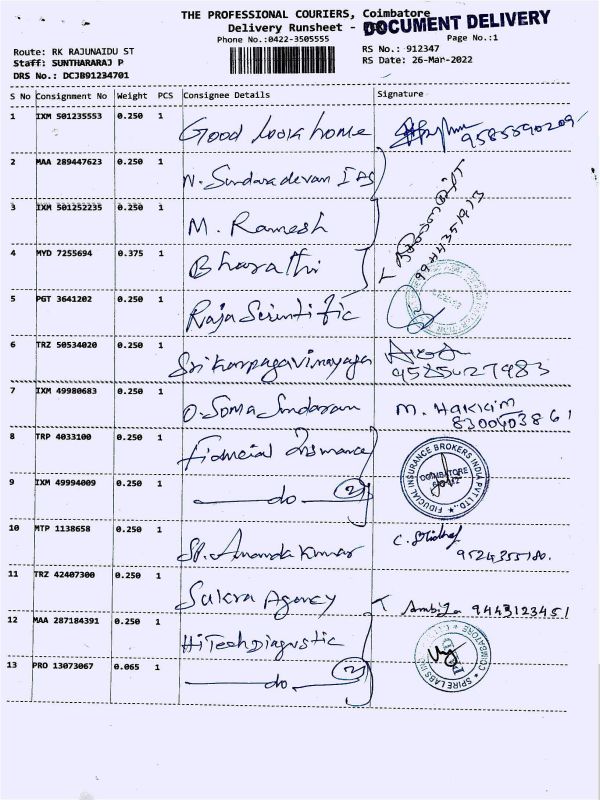 THE PROFESSIONAL COURIERS, Coimbatore
Delivery Runsheet - DOCUMENT DELIVERY
Phone No.:0422-3505555
Page No.:1
Route: RK RAJUNAIDU ST
RS No.: 912347
Staff: SUNTHARARAJ P
RS Date: 26-Mar-2022
DRS No.: DCJB91234701
S No Consignment No Weight PCS Consignee Details Signature
1 IXM 501235553 0.250 1 Good look home 9585590209
2 MAA 289447623 0.250 1 N. Sundaradevan IAS
3 IXM 501252235 0.250 1 M. Ramesh 9944351913
4 MYD 7255694 0.375 1 Bharathi
5 PGT 3641202 0.250 1 Raja Scientific
6 TRZ 50534020 0.250 1 Srikarpagavinayaga 9585027983
7 IXM 49980683 0.250 1 O. Soma Sundaram M. Hakkim
8300403861
8 TRP 4033100 0.250 1 Fiducial Insurance FIDUCIAL INSURANCE BROKERS INDIA PVT LTD., COIMBATORE
9 IXM 49994009 0.250 1 do (2)
10 MTP 1138658 0.250 1 SP. Ananda Kumar C.
9524355180.
11 TRZ 42407300 0.250 1 Sukra Agency Ambika 9443123451
12 MAA 287184391 0.250 1 HiTech Diagnostic SPIRE LABS COIMBATORE
13 PRO 13073067 0.065 1 do (2)